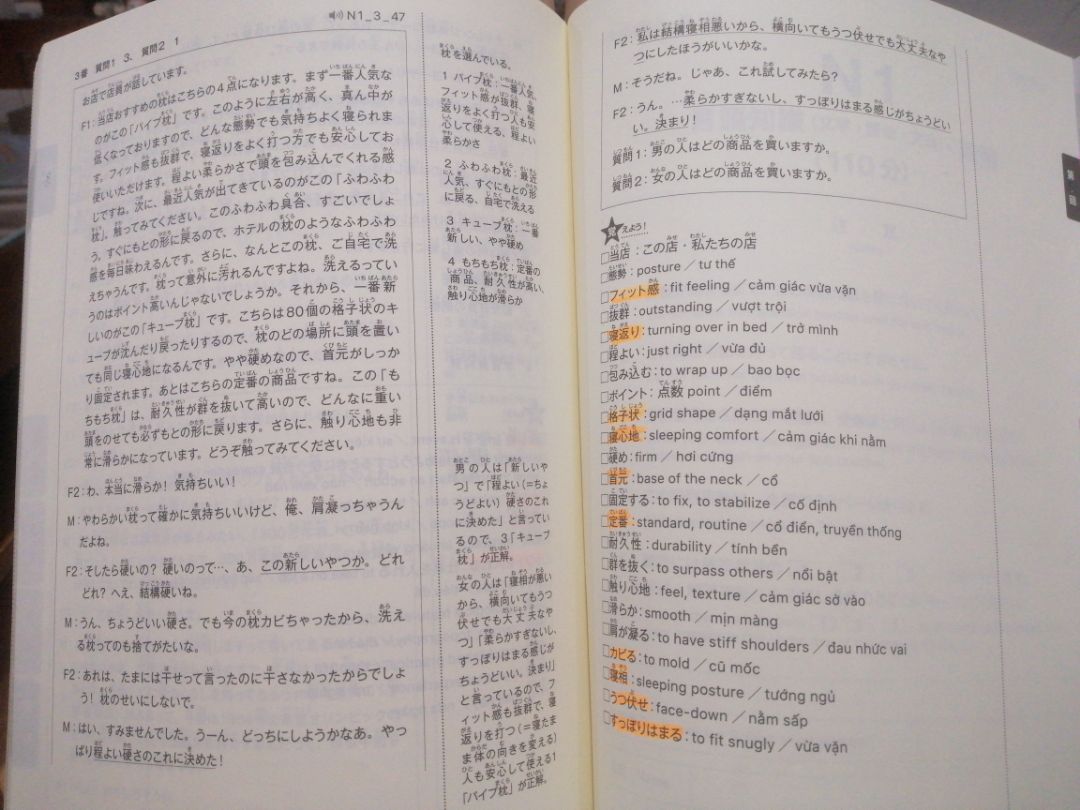 N1_3_47
3番 質問1 3、質問2 1
お店で店員が話しています。
F1：当店おすすめの枕はこちらの4点になります。まず一番人気な
のがこの「パイプ枕」です。このように左右が高く、真ん中が
低くなっておりますので、どんな態勢でも気持ちよく寝られま
す。フィット感も抜群で、寝返りをよく打つ方でも安心してお
使いいただけます。程よい柔らかさで頭を包み込んでくれる感
じですね。次に、最近人気が出てきているのがこの「ふわふわ
枕」、触ってみてください。このふわふわ具合、すごいでしょ
う。すぐにもとの形に戻るので、ホテルの枕のようなふわふわ
感を毎日味わえるんです。さらに、なんとこの枕、ご自宅で洗
えちゃうんです。枕って意外に汚れるんですよね。洗えるってい
うのはポイント高いんじゃないでしょうか。それから、一番新
しいのがこの「キューブ枕」です。こちらは80個の格子状のキ
ューブが沈んだり戻ったりするので、枕のどの場所に頭を置い
ても同じ寝心地になるんです。やや硬めなので、首元がしっか
り固定されます。あとはこちらの定番の商品ですね。この「も
ちもち枕」は、耐久性が群を抜いて高いので、どんなに重い
頭をのせても必ずもとの形に戻ります。さらに、触り心地も非
常に滑らかになっています。どうぞ触ってみてください。
F2：わ、本当に滑らか！気持ちいい！
M：やわらかい枕って確かに気持ちいいけど、俺、肩凝っちゃうん
だよね。
F2：そしたら硬いの？硬いのって…、あ、この新しいやつか。どれ
どれ？へえ、結構硬いね。
M：うん、ちょうどいい硬さ。でも今の枕カビちゃったから、洗え
る枕ってのも捨てがたいな。
F2：あれは、たまには干せって言ったのに干さなかったからでしょ
う！枕のせいにしないで。
M：はい、すみませんでした。うーん、どっちにしようかなあ。やっ
ぱり程よい硬さのこれに決めた！
枕を選んでいる。
1 パイプ枕：一番人気、
フィット感が抜群、寝
返りをよく打つ人も安
心して使える、程よい
柔らかさ
2 ふわふわ枕：最近
人気、すぐにもとの形
に戻る、自宅で洗える
3 キューブ枕：一番
新しい、やや硬め
4 もちもち枕：定番の
商品、耐久性が高い、
触り心地が滑らか
男の人は「新しいや
つ」で「程よい（＝ちょ
うどよい）硬さのこれ
に決めた」と言ってい
るので、3「キューブ
枕」が正解。
女の人は「寝相が悪い
から、横向いてもうつ
伏せでも大丈夫なや
つ」「柔らかすぎないし、
すっぽりはまる感じが
ちょうどいい。決まり」
と言っているので、フ
ィット感も抜群で、寝
返りを打つ（＝寝たま
ま体の向きを変える）
人も安心して使える1
「パイプ枕」が正解。
F2：私は結構寝相悪いから、横向いてもうつ伏せでも大丈夫なや
つにしたほうがいいかな。
M：そうだね。じゃあ、これ試してみたら？
F2：うん。…柔らかすぎないし、すっぽりはまる感じがちょうどい
い。決まり！
質問1：男の人はどの商品を買いますか。
質問2：女の人はどの商品を買いますか。
覚えよう！
□当店：この店・私たちの店
□態勢：posture／tư thế
□フィット感：fit feeling／cảm giác vừa vặn
□抜群：outstanding／vượt trội
□寝返り：turning over in bed／trở mình
□程よい：just right／vừa đủ
□包み込む：to wrap up／bao bọc
□ポイント：点数 point／điểm
□格子状：grid shape／dạng mắt lưới
□寝心地：sleeping comfort／cảm giác khi nằm
□硬め：firm／hơi cứng
□首元：base of the neck／cổ
□固定する：to fix, to stabilize／cố định
□定番：standard, routine／cổ điển, truyền thống
□耐久性：durability／tính bền
□群を抜く：to surpass others／nổi bật
□触り心地：feel, texture／cảm giác sờ vào
□滑らか：smooth／mịn màng
□肩が凝る：to have stiff shoulders／đau nhức vai
□カビる：to mold／cũ mốc
□寝相：sleeping posture／tướng ngủ
□うつ伏せ：face-down／nằm sấp
□すっぽりはまる：to fit snugly／vừa vặn